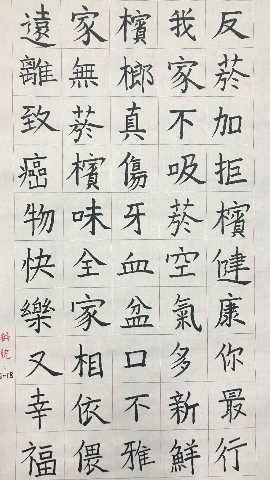 反菸加拒檳健康你最行
我家不吸菸空氣多新鮮
檳榔真傷牙血盆口不雅
家無菸檳味全家相依偎
遠離致癌物快樂又幸福